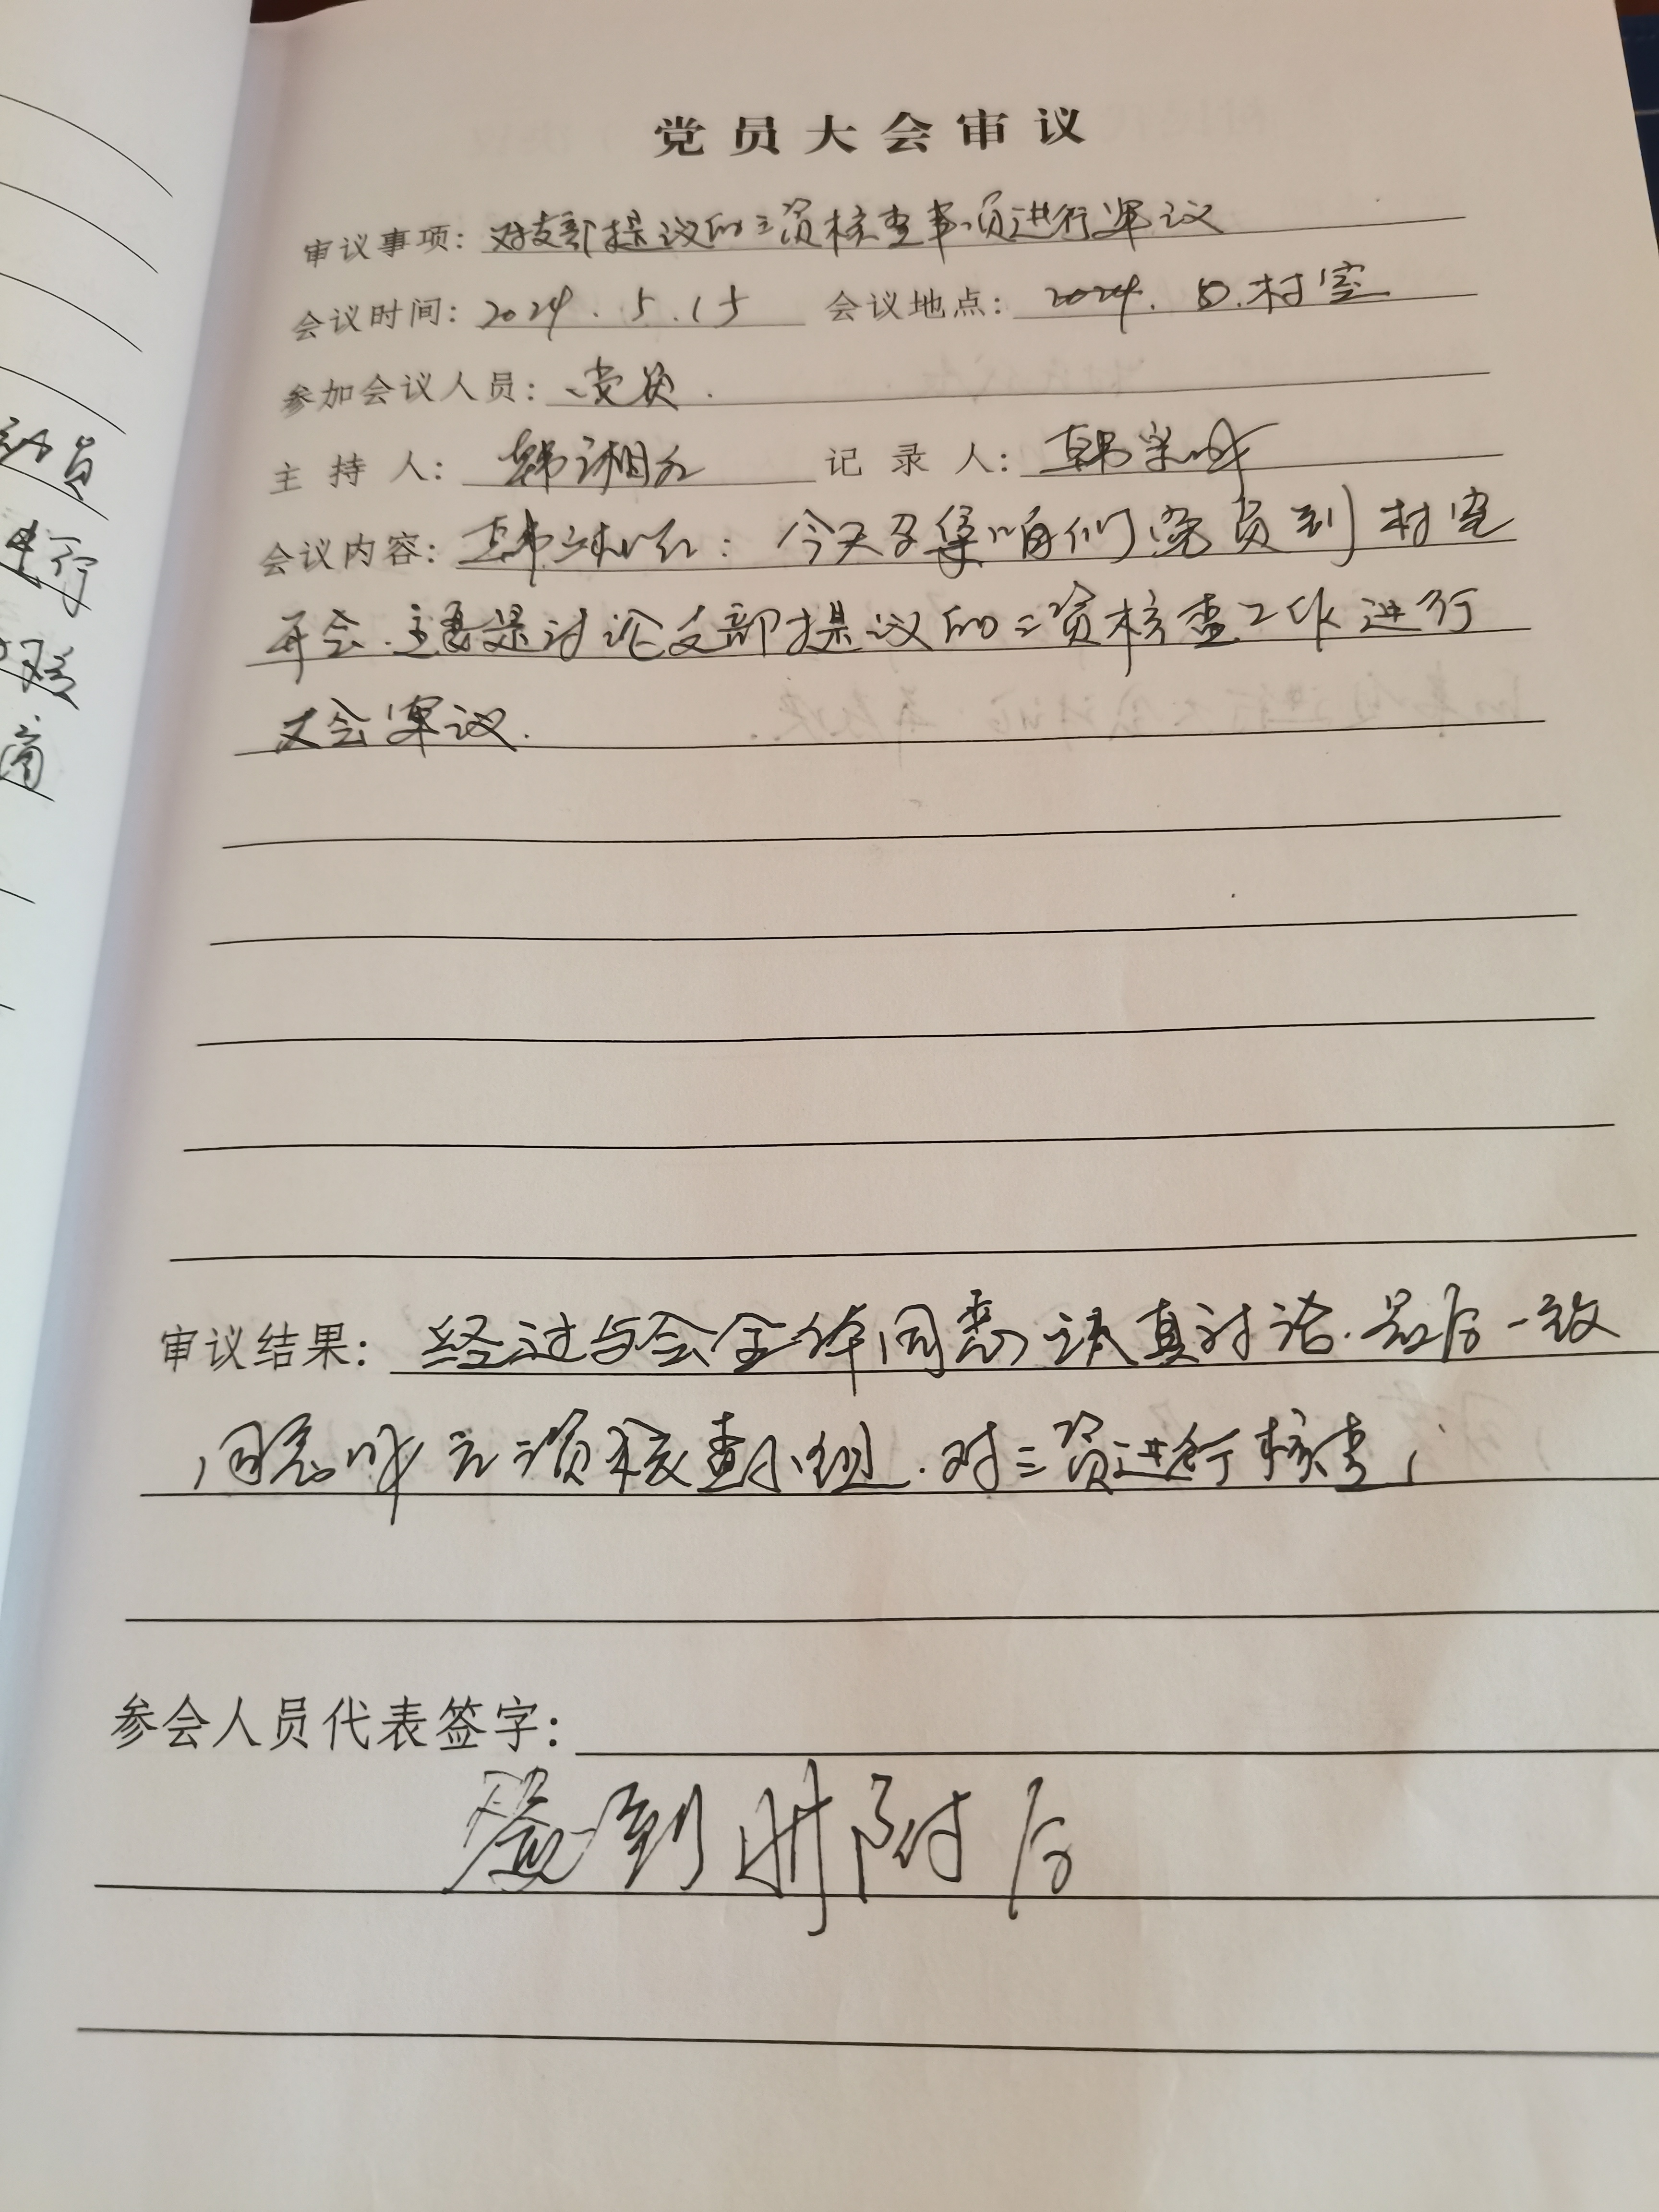 党员大会审议
审议事项：对支部提议的三资核查事项进行审议
会议时间：2024.5.15 会议地点：2024. 村室
参加会议人员：党员.
主持人：韩 记录人：韩宗成
会议内容：韩 ：今天召集咱们党员到村室
开会.主要是讨论支部提议的三资核查工作进行
大会审议.
审议结果：经过与会全体同志认真讨论.最后一致
同意成立三资核查小组.对三资进行核查，
参会人员代表签字：
签到册附后
员
行